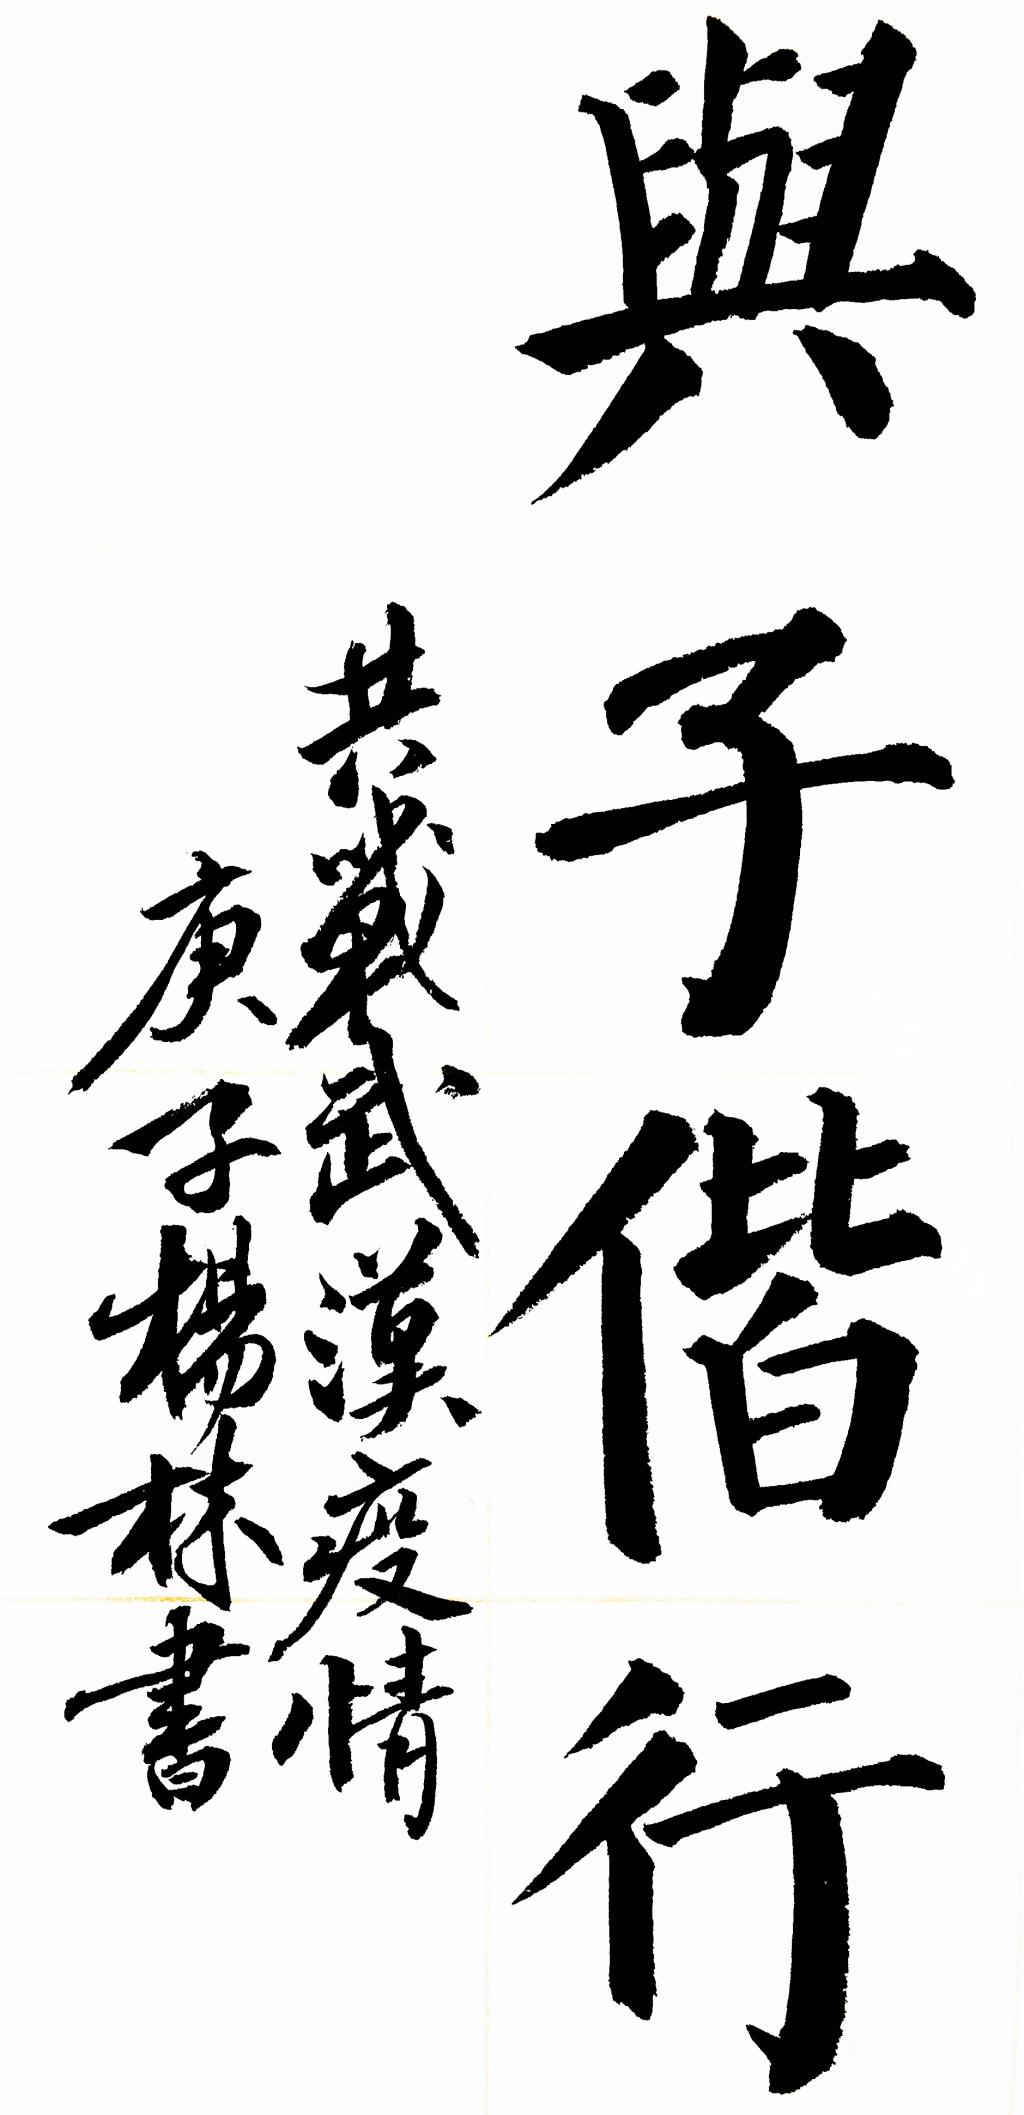 與子偕行
共戰武漢疫情
庚子楊林書